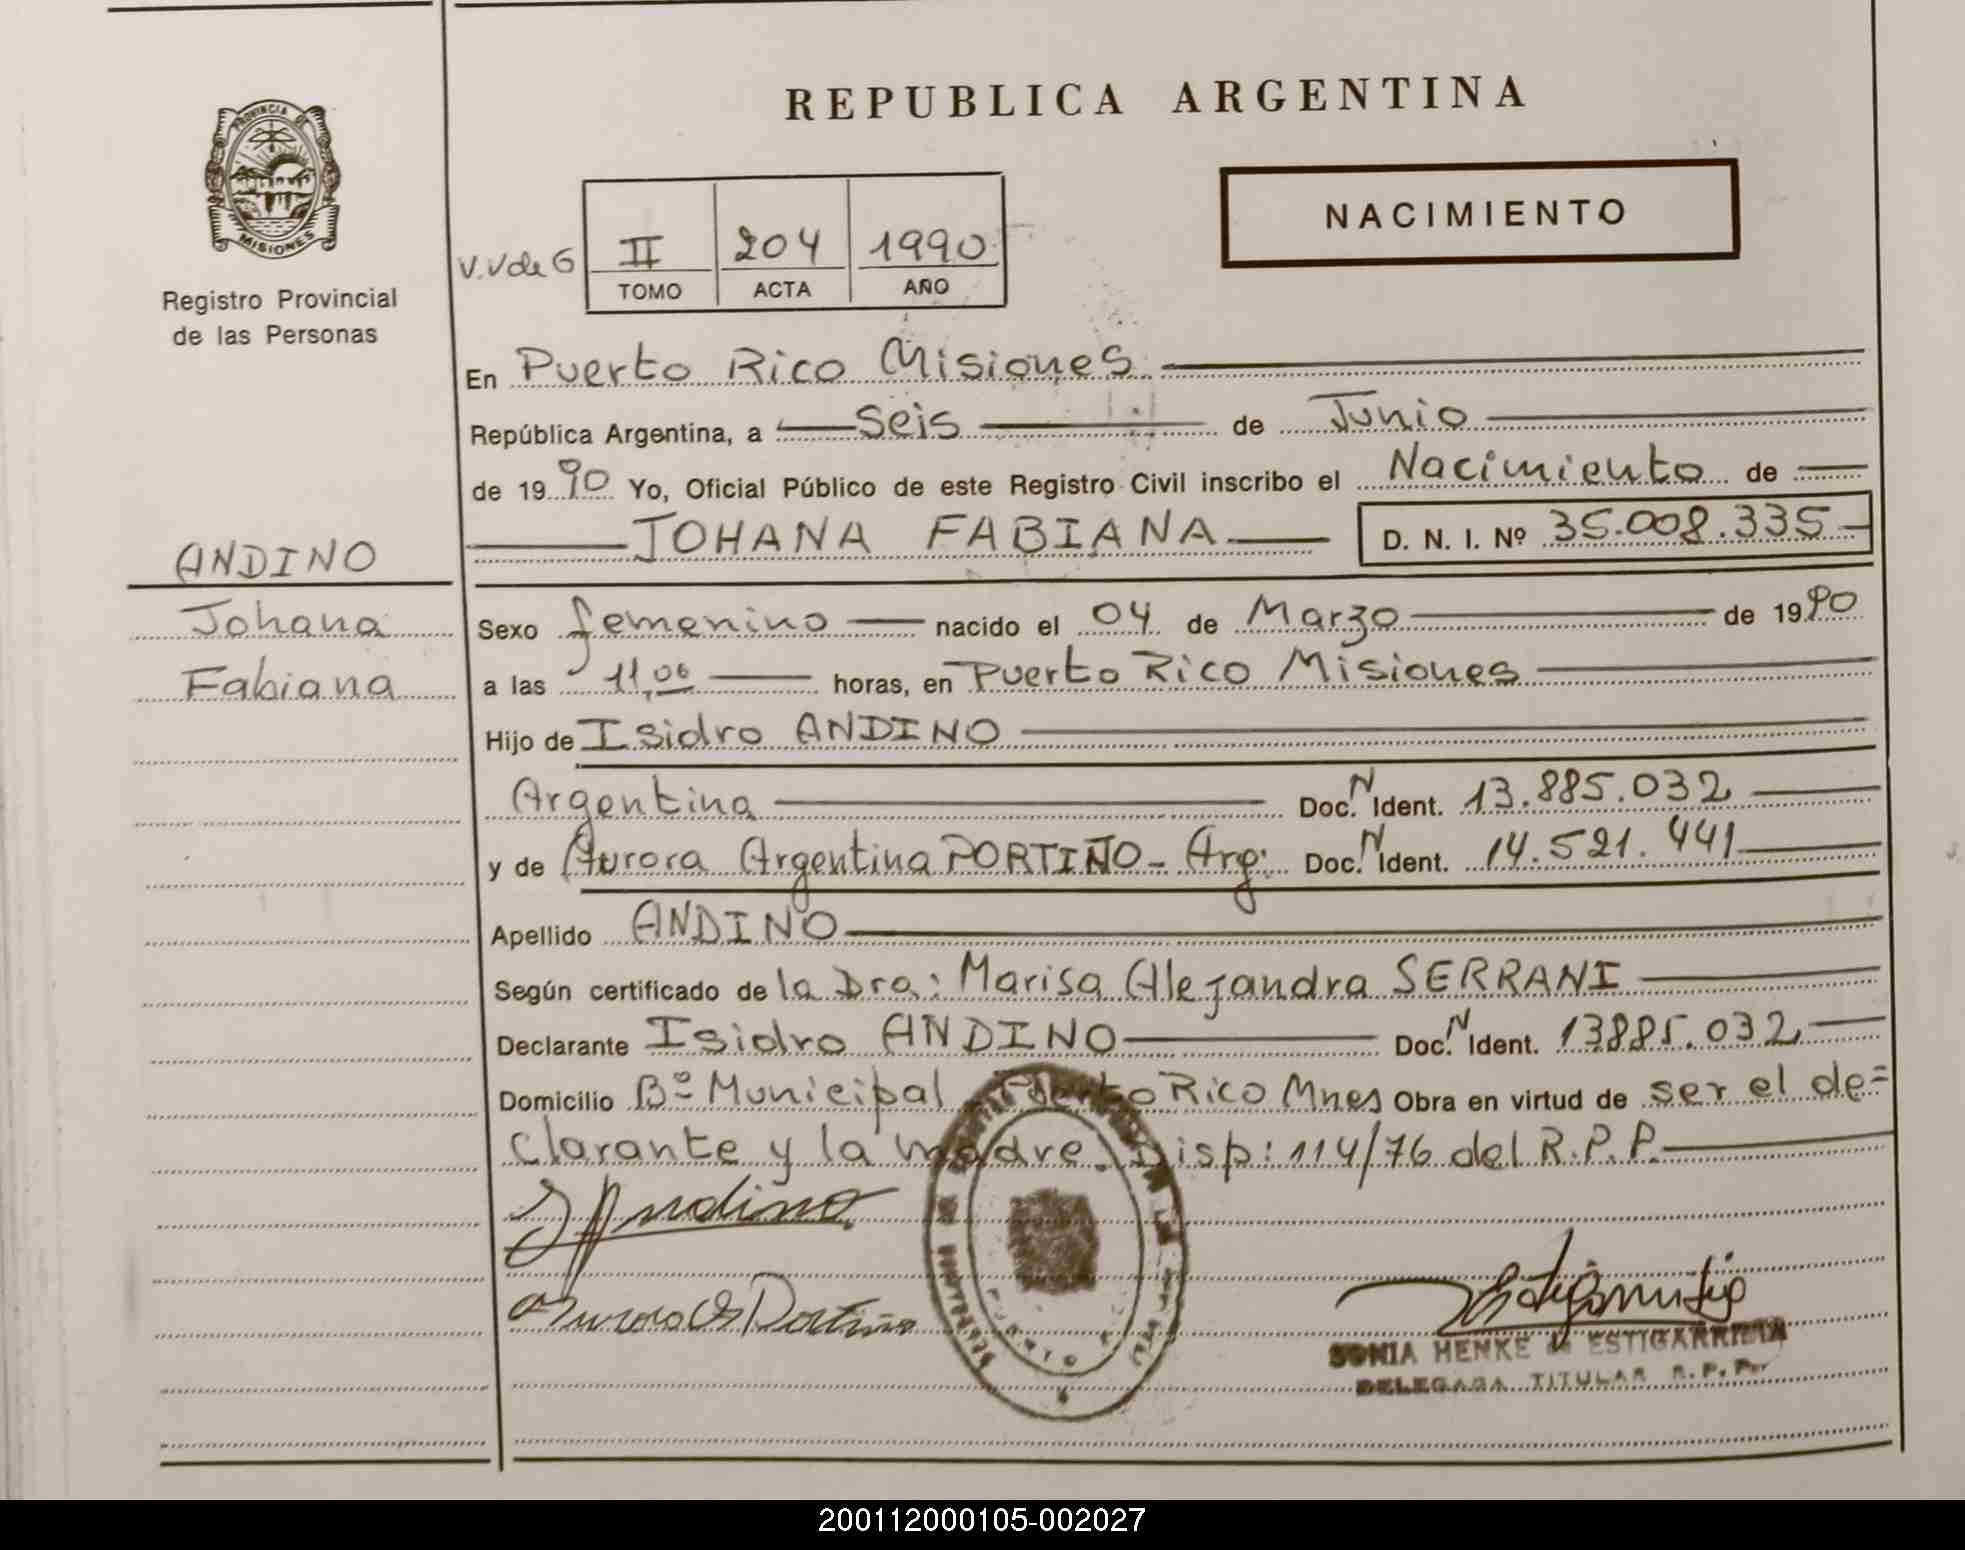 REPUBLICA ARGENTINA
PROVINCIA DE
MISIONES
Registro Provincial
de las Personas
NACIMIENTO
V.V de G
II 204 1990
TOMO ACTA AÑO
En Puerto Rico Misiones
República Argentina, a Seis de Junio
de 1990 Yo, Oficial Público de este Registro Civil inscribo el Nacimiento de
JOHANA FABIANA D. N. I. Nº 35.008.335
ANDINO
Johana
Fabiana
Sexo femenino nacido el 04 de Marzo de 1990
a las 11,00 horas, en Puerto Rico Misiones
Hijo de Isidro ANDINO
Argentina Doc. N Ident. 13.885.032
y de Aurora Argentina PORTIÑO - Arg: Doc. N Ident. 14.521.441
Apellido ANDINO
Según certificado de la Dra: Marisa Alejandra SERRANI
Declarante Isidro ANDINO Doc. N Ident. 13885.032
Domicilio Bº Municipal Puerto Rico Mnes Obra en virtud de ser el de=
clarante y la madre. Disp: 114/76 del R.P.P.
Andino
Aurora A Portiño
SONIA HENKE de ESTIGARRIBIA
DELEGADA TITULAR R.P.P.
200112000105-002027